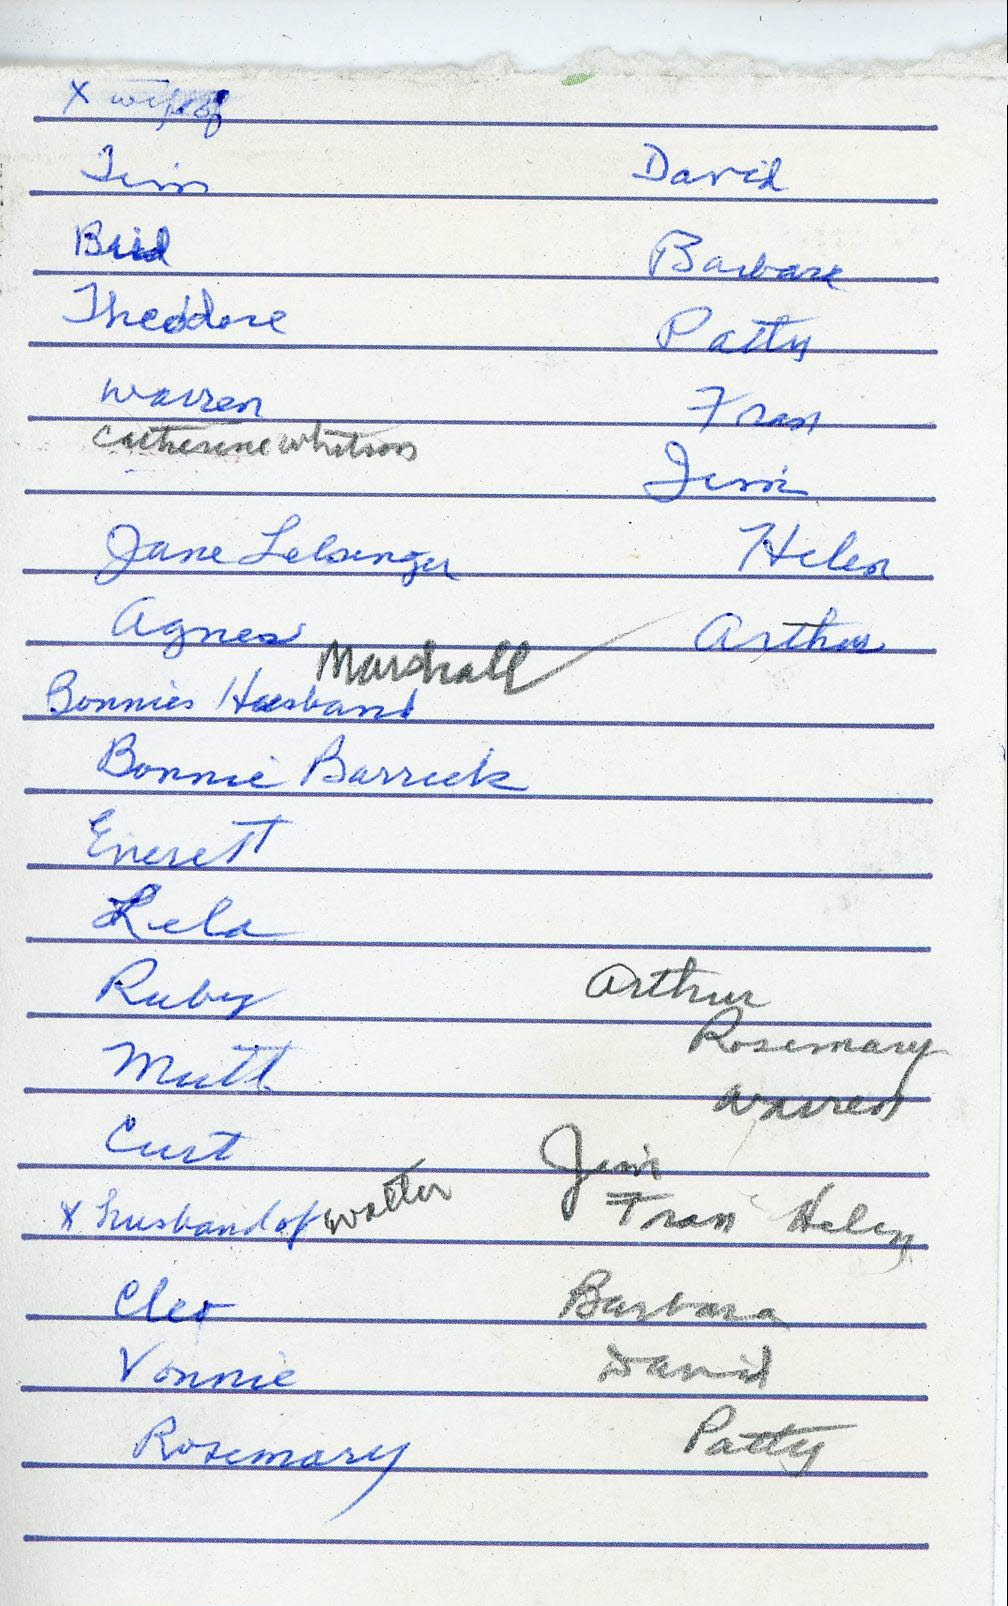 X wife of
Jim David
Bud Barbara
Theodore Patty
Warren Fran
Catherine Whitson
Jim
Jane Lelsinger Helen
Agnes Arthur
Marshall
Bonnies Husband
Bonnie Barrick
Everett
Lela
Ruby Arthur
Rosemary
Mutt Warren
Curt Jim
X husband of Walter Fran Helen
Cleo Barbara
Vonnie David
Rosemary Patty